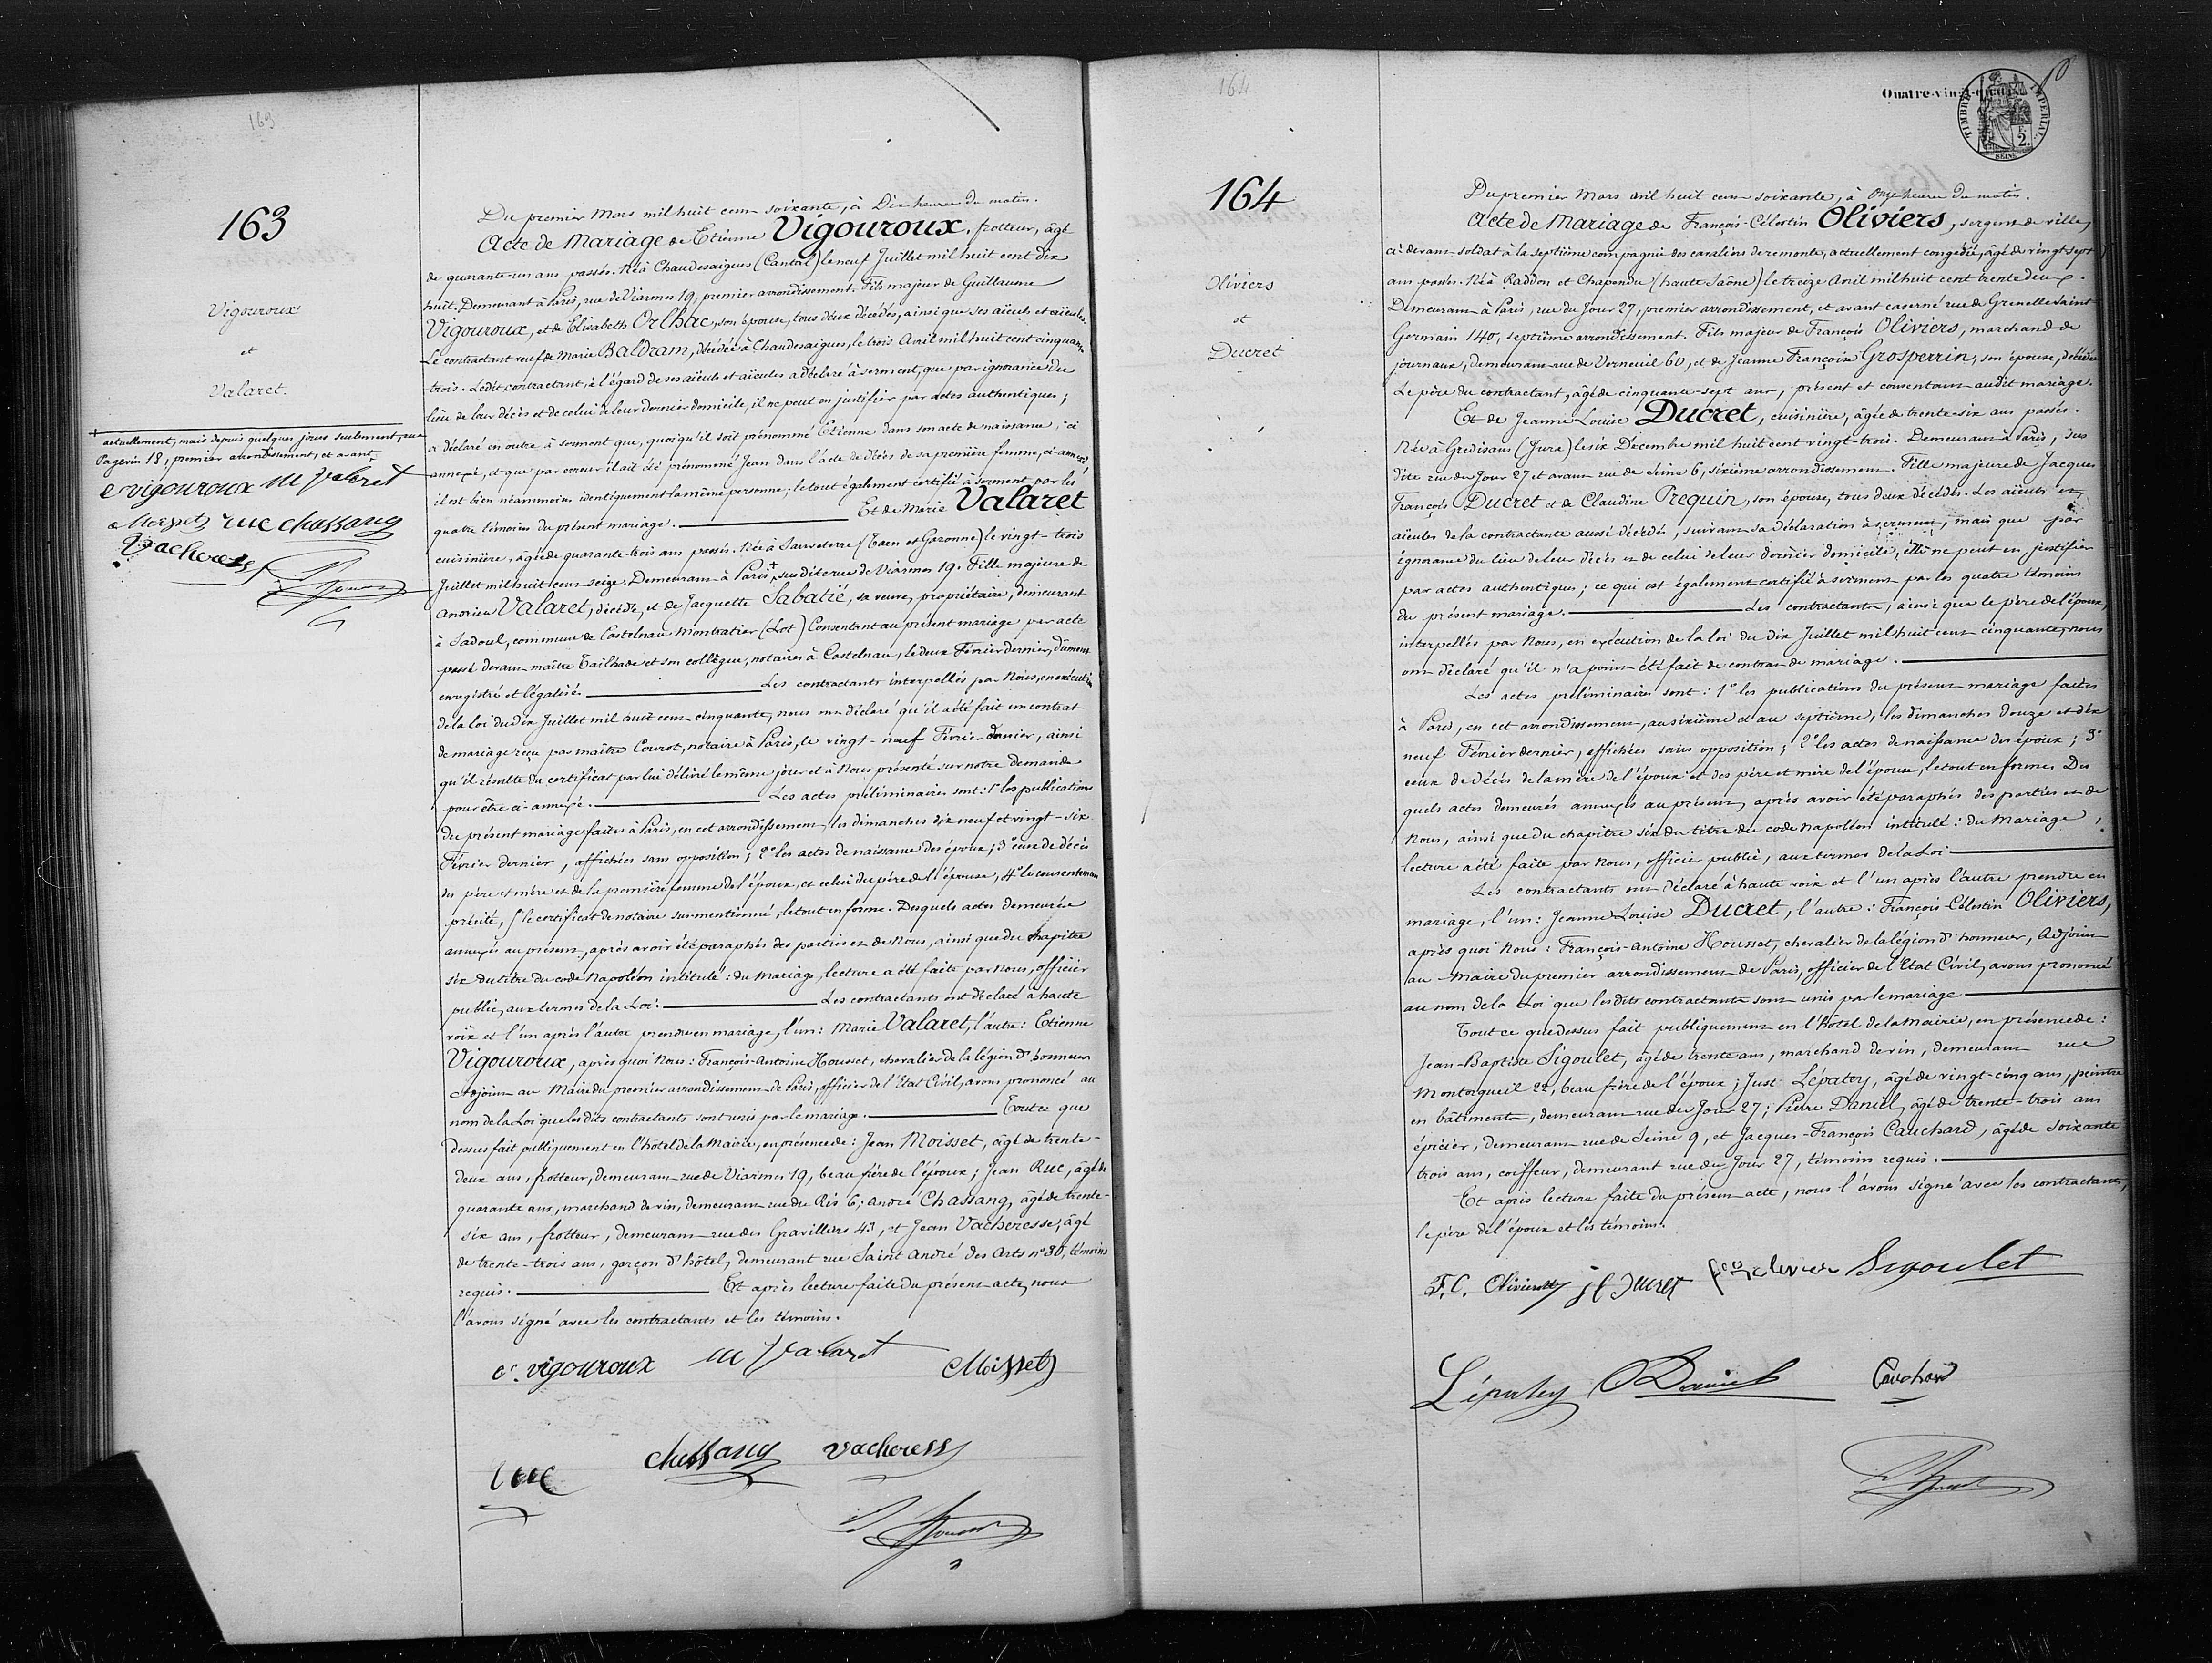 163
163
Vigouroux
et
Valaret.
+ actuellement, mais depuis quelques jours seulement, rue
Pagevin 18, premier arrondissement, et avant
e vigouroux m valaret
Moisset rue chassang
Vacheress
Du premier Mars mil huit cent soixante, à Dix heures du matin.
Acte de Mariage de Etienne Vigouroux, frotteur, âgé
de quarante-un ans passés. Né à Chaudesaigues (Cantal) le neuf Juillet mil huit cent dix
huit. Demeurant à Paris, rue de Viarmes 19, premier arrondissement. Fils majeur de Guillaume
Vigouroux, et de Elisabeth Orlhac, son épouse, tous deux décédés, ainsi que ses aïeuls et aïeules.
Le contractant veuf de Marie Baldram, décédée à Chaudesaigues, le trois Avril mil huit cent cinquante
trois. Ledit contractant, à l'égard de ses aïeuls et aïeules a déclaré à serment, que par ignorance du
lieu de leur décès et de celui de leur dernier domicile, il ne peut en justifier par actes authentiques;
a déclaré en outre à serment que, quoiqu'il soit prénommé Etienne dans son acte de naissance, ci
annexé, et que par erreur il ait été prénommé Jean dans l'acte de décès de sa première femme, ci-annexé
il est bien néanmoins identiquement la même personne; le tout également certifié à serment par les
quatre témoins du présent mariage. Et de Marie Valaret
cuisinière, âgée de quarante-trois ans passés. Née à Sauveterre (Tarn et Garonne) le vingt-trois
Juillet mil huit cent seize. Demeurant à Paris + susdite rue de Viarmes 19. Fille majeure de
Andrieu Valaret, décédé, et de Jacquette Sabatié, sa veuve, propriétaire, demeurant
à Sadoul, commune de Castelnau Montratier (Lot) Consentant au présent mariage par acte
passé devant maître Tailhade et son collègue, notaires à Castelnau, le deux Février dernier, dûment
enregistré et légalisé. Les contractants interpellés par Nous, en exécution
de la loi du dix Juillet mil huit cent cinquante, nous ont déclaré qu'il a été fait un contrat
de mariage reçu par maître Courot, notaire à Paris, le vingt-neuf Février dernier, ainsi
qu'il résulte du certificat par lui délivré le même jour et à Nous présenté sur notre demande
pour être ci-annexé. Les actes préliminaires sont: 1° les publications
du présent mariage faites à Paris, en cet arrondissement, les dimanches dix neuf et vingt-six
Février dernier, affichées sans opposition; 2° les actes de naissance des époux; 3° ceux de décès
des père et mère et de la première femme de l'époux, et celui du père de l'épouse, 4° le consentement
précité, 5° le certificat de notaire sus-mentionné, le tout en forme. Desquels actes demeurés
annexés au présent, après avoir été paraphés des parties et de Nous, ainsi que du Chapitre
six du titre du code Napoléon intitulé: du Mariage, lecture a été faite par nous, officier
public, aux termes de la Loi. Les contractants ont déclaré à haute
voix et l'un après l'autre prendre en mariage, l'un: Marie Valaret, l'autre: Etienne
Vigouroux, après quoi Nous: François-Antoine Housset, chevalier de la légion d'honneur
Adjoint au Maire du premier arrondissement de Paris, officier de l'Etat Civil, avons prononcé au
nom de la Loi que lesdits contractants sont unis par le mariage. Tout ce que
dessus fait publiquement en l'hôtel de la Mairie, en présence de: Jean Moisset, âgé de trente-
deux ans, frotteur, demeurant rue de Viarmes 19, beau frère de l'époux; Jean Ruc, âgé de
quarante ans, marchand de vin, demeurant rue du Ris 6; André Chassang, âgé de trente-
six ans, frotteur, demeurant rue des Gravilliers 43, et Jean Vacheresse, âgé
de trente-trois ans, garçon d'hôtel, demeurant rue Saint André des Arts n° 30, témoins
requis. Et après lecture faite du présent acte, nous
l'avons signé avec les contractants et les témoins.
e. vigouroux m valaret Moisset
ruc chassang vacheress
164
Quatre-vingt
TIMBRE IMPERIAL
2.
SEINE
164
Oliviers
et
Ducret
Du premier Mars mil huit cent soixante, à onze heures du matin.
Acte de Mariage de François-Célestin Oliviers, sergent de ville,
ci-devant soldat à la septième compagnie des cavaliers de remonte, actuellement congédié, âgé de vingt sept
ans passés. Né à Raddon et Chapendu (haute Saône) le treize Avril mil huit cent trente deux.
Demeurant à Paris, rue du Jour 27, premier arrondissement, et avant caserné rue de Grenelle Saint
Germain 140, septième arrondissement. Fils majeur de François Oliviers, marchand de
journaux, demeurant rue de Verneuil 60, et de Jeanne Françoise Grosperrin, son épouse, décédée
Le père du contractant, âgé de cinquante-sept ans, présent et consentant audit mariage.
Et de Jeanne Louise Ducret, cuisinière, âgée de trente-six ans passés.
Née à Gredisans (Jura) le six Décembre mil huit cent vingt-trois. Demeurant à Paris, sus
dite rue du Jour 27 et avant rue de Seine 6, sixième arrondissement. Fille majeure de Jacques
François Ducret et de Claudine Prequin, son épouse, tous deux décédés. Les aïeuls et
aïeules de la contractante aussi décédés, suivant sa déclaration à serment, mais que par
ignorance du lieu de leur décès et de celui de leur dernier domicile, elle ne peut en justifier
par actes authentiques; ce qui est également certifié à serment par les quatre témoins
du présent mariage. Les contractants, ainsi que le père de l'époux,
interpellés par Nous, en exécution de la loi du dix Juillet mil huit cent cinquante, nous
ont déclaré qu'il n'a point été fait de contrat de mariage.
Les actes préliminaires sont: 1° les publications du présent mariage faites
à Paris, en cet arrondissement, au sixième et au septième, les dimanches douze et dix
neuf Février dernier, affichées sans opposition; 2° les actes de naissance des époux; 3°
ceux de décès de la mère de l'époux et des père et mère de l'épouse, le tout en forme. Des
quels actes demeurés annexés au présent, après avoir été paraphés des parties et de
Nous, ainsi que du chapitre six du titre du code Napoléon intitulé: du Mariage,
lecture a été faite par Nous, officier public, aux termes de la Loi
Les contractants ont déclaré à haute voix et l'un après l'autre prendre en
mariage, l'un: Jeanne Louise Ducret, l'autre: François-Célestin Oliviers,
après quoi Nous: François-Antoine Housset, chevalier de la légion d'honneur, Adjoint
au Maire du premier arrondissement de Paris, officier de l'Etat Civil, avons prononcé
au nom de la Loi que lesdits contractants sont unis par le mariage
Tout ce que dessus fait publiquement en l'hôtel de la Mairie, en présence de:
Jean-Baptiste Sigoulet, âgé de trente ans, marchand de vin, demeurant rue
Montorgueil 22, beau frère de l'époux; Just Lépatey, âgé de vingt-cinq ans, peintre
en bâtiments, demeurant rue du Jour 27; Pierre Daniel, âgé de trente-trois ans
épicier, demeurant rue de Seine 9, et Jacques-François Cauchard, âgé de soixante
trois ans, coiffeur, demeurant rue du Jour 27, témoins requis.
Et après lecture faite du présent acte, nous l'avons signé avec les contractants,
le père de l'époux et les témoins.
F.C. Oliviers j l Ducret Sigoulet
Lépatey Daniel Cauchard